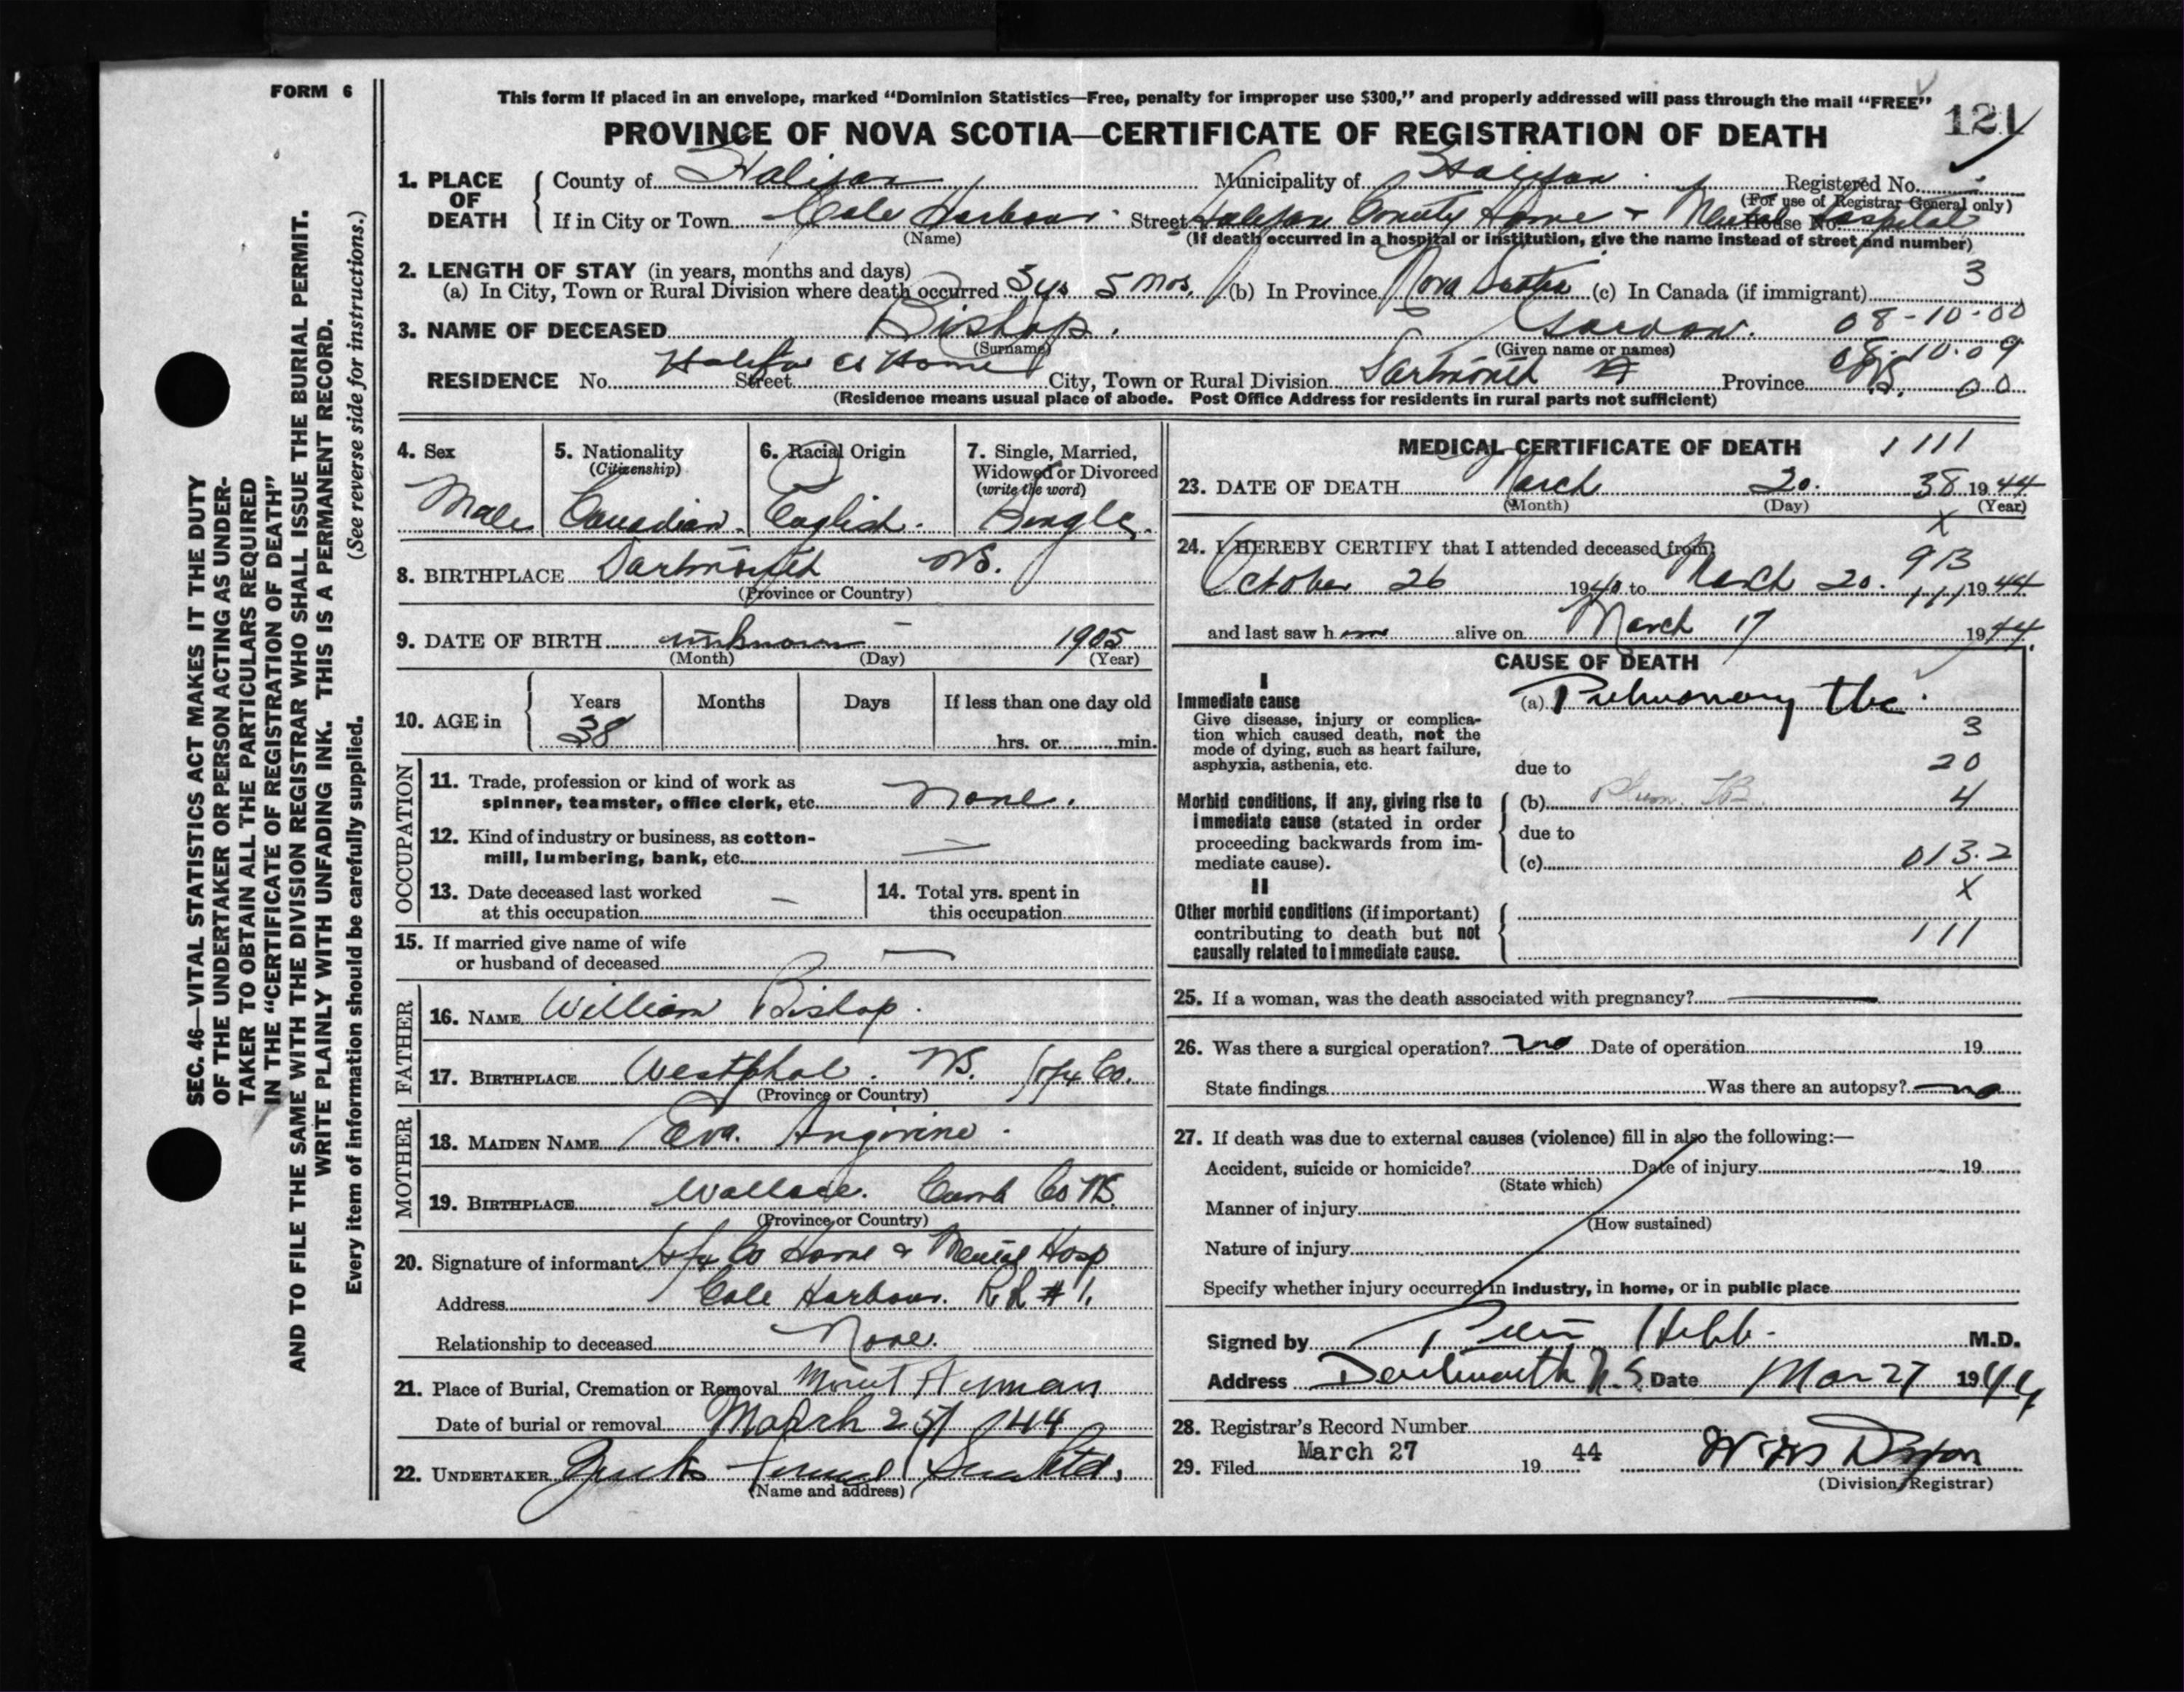 FORM 6
This form if placed in an envelope, marked “Dominion Statistics—Free, penalty for improper use $300,” and properly addressed will pass through the mail “FREE”
PROVINCE OF NOVA SCOTIA—CERTIFICATE OF REGISTRATION OF DEATH
121
1. PLACE OF DEATH
County of Halifax Municipality of Halifax Registered No.
(For use of Registrar General only)
If in City or Town Cole Harbour Street Halifax County Home & Mental Hospital House No.
(Name) (If death occurred in a hospital or institution, give the name instead of street and number)
2. LENGTH OF STAY (in years, months and days)
(a) In City, Town or Rural Division where death occurred 3 yrs 5 mos. (b) In Province Nova Scotia (c) In Canada (if immigrant) 3
08-10-00
3. NAME OF DECEASED Bishop. Gordon.
(Surname) (Given name or names)
08-10-09
RESIDENCE No. Halifax Co Home Street City, Town or Rural Division Dartmouth Province N.S. 00
(Residence means usual place of abode. Post Office Address for residents in rural parts not sufficient)
4. Sex 5. Nationality (Citizenship) 6. Racial Origin 7. Single, Married, Widowed or Divorced (write the word)
Male Canadian. English. Single.
8. BIRTHPLACE Dartmouth NS.
(Province or Country)
9. DATE OF BIRTH unknown — 1905
(Month) (Day) (Year)
10. AGE in Years Months Days If less than one day old
38 hrs. or min.
OCCUPATION
11. Trade, profession or kind of work as
spinner, teamster, office clerk, etc. None.
12. Kind of industry or business, as cotton-
mill, lumbering, bank, etc. —
13. Date deceased last worked
at this occupation —
14. Total yrs. spent in
this occupation
15. If married give name of wife
or husband of deceased —
FATHER
16. NAME William Bishop.
17. BIRTHPLACE Westphal. NS. Hfx Co.
(Province or Country)
MOTHER
18. MAIDEN NAME Eva.
19. BIRTHPLACE Wallace. Cumb Co NS.
(Province or Country)
20. Signature of informant Hfx Co Home & Mental Hosp
Address Cole Harbour. RR #1.
Relationship to deceased None.
21. Place of Burial, Cremation or Removal Mount Herman
Date of burial or removal March 25/44
22. UNDERTAKER Funeral Ltd.
(Name and address)
MEDICAL CERTIFICATE OF DEATH 1 111
23. DATE OF DEATH March 20. 38 1944
(Month) (Day) (Year)
X
24. I HEREBY CERTIFY that I attended deceased from:
913
October 26 1940 to March 20. 111 1944
and last saw h alive on March 17 1944.
CAUSE OF DEATH
I
Immediate cause
Give disease, injury or complica-
tion which caused death, not the
mode of dying, such as heart failure,
asphyxia, asthenia, etc.
(a) Pulmonary tbc.
3
due to 20
Morbid conditions, if any, giving rise to
immediate cause (stated in order
proceeding backwards from im-
mediate cause).
(b) TB 4
due to
(c) 013.2
II
X
Other morbid conditions (if important)
contributing to death but not
causally related to immediate cause.
111
25. If a woman, was the death associated with pregnancy? —
26. Was there a surgical operation? no Date of operation 19
State findings Was there an autopsy? no
27. If death was due to external causes (violence) fill in also the following:—
Accident, suicide or homicide? Date of injury 19
(State which)
Manner of injury
(How sustained)
Nature of injury
Specify whether injury occurred in industry, in home, or in public place
Signed by Hebb. M.D.
Address Dartmouth N.S. Date Mar 27 1944
28. Registrar's Record Number
29. Filed March 27 19 44
(Division Registrar)
SEC. 46—VITAL STATISTICS ACT MAKES IT THE DUTY
OF THE UNDERTAKER OR PERSON ACTING AS UNDER-
TAKER TO OBTAIN ALL THE PARTICULARS REQUIRED
IN THE “CERTIFICATE OF REGISTRATION OF DEATH”
AND TO FILE THE SAME WITH THE DIVISION REGISTRAR WHO SHALL ISSUE THE BURIAL PERMIT.
WRITE PLAINLY WITH UNFADING INK. THIS IS A PERMANENT RECORD.
Every item of information should be carefully supplied. (See reverse side for instructions.)